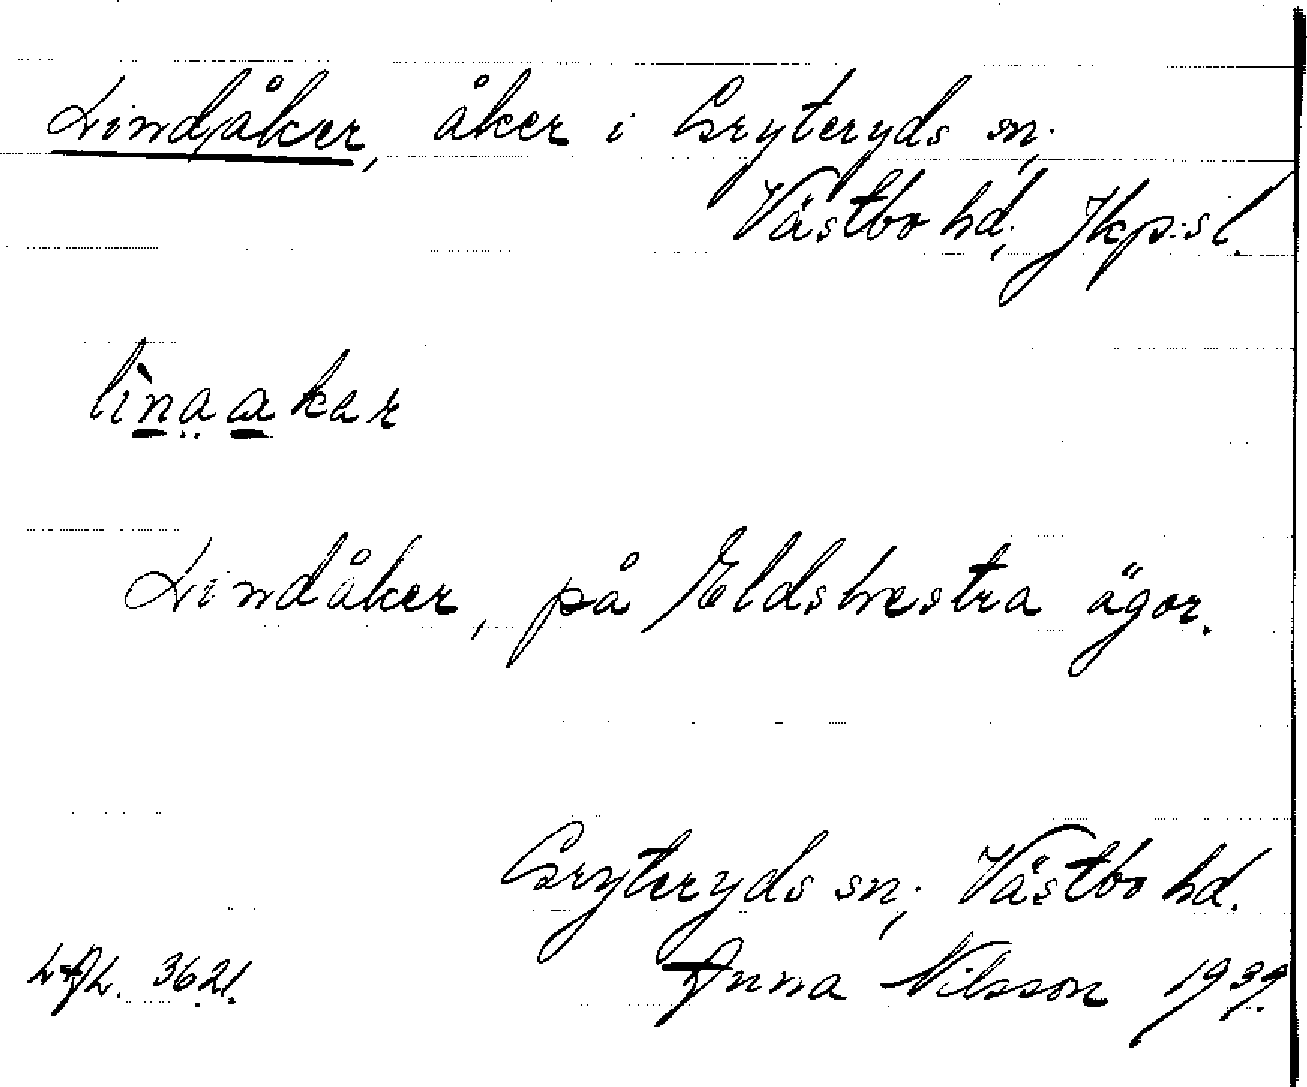 Lindåker, åker i Gryteryds sn;
Västbo hd; Jkp:sl.
lìnaakar
Lindåker, på Eldshestra ägor.
Gryteryds sn; Västbo hd.
3621. Anna Nilsson 1939.